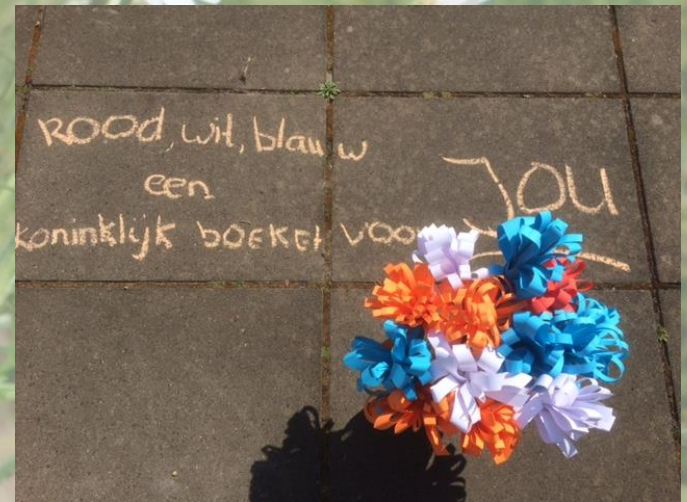 Rood, wit, blauw
een
koninklijk boeket voor
Jou